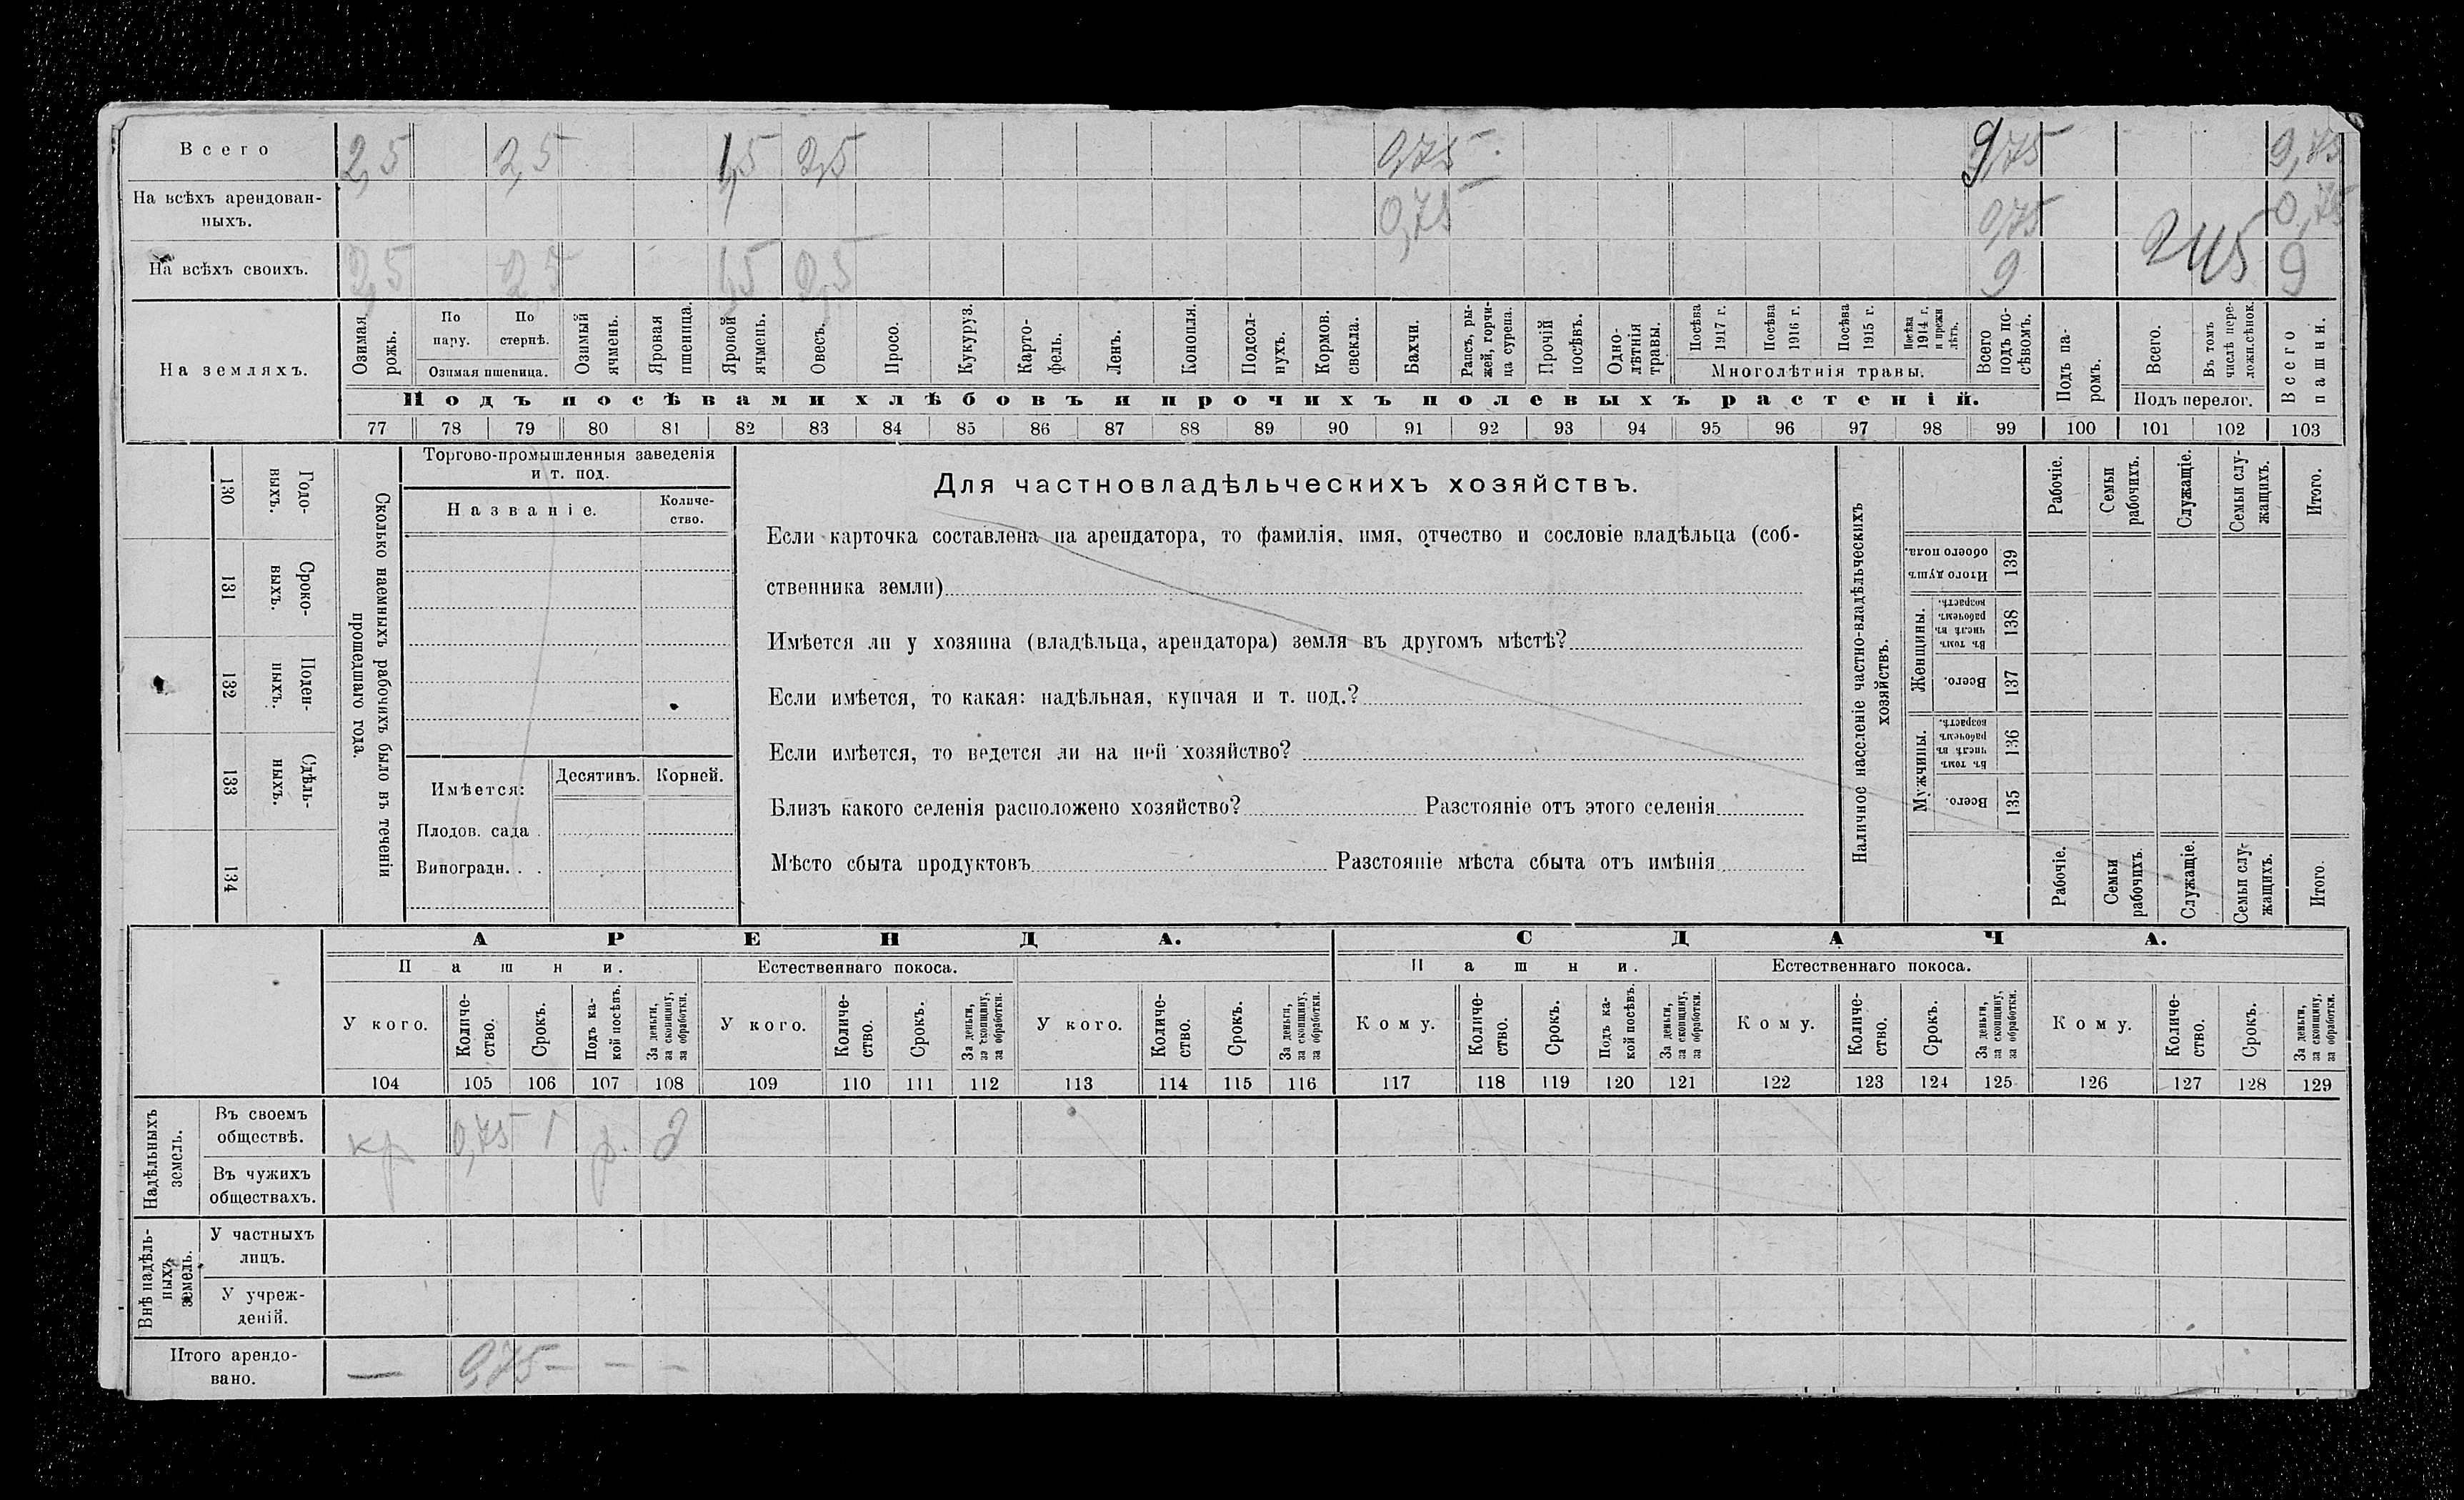 Всего 2,5 2,5 1,5 2,5 0,75 9,75 9,75
На всѣхъ арендован-
ныхъ. 0,75 0,75 0,75
На всѣхъ своихъ. 2,5 2,5 1,5 2,5 9 245 9
На земляхъ.
Озимая рожь.
По пару.
По стернѣ.
Озимая пшеница.
Озимый ячмень.
Яровая пшеница.
Яровой ячмень.
Овесъ.
Просо.
Кукуруз.
Карто-
фель.
Ленъ.
Конопля.
Подсол-
нухъ.
Кормов.
свекла.
Бахчи.
Рапсъ, ры-
жей, горчи-
ца сурепа.
Прочій
посѣвъ.
Одно-
лѣтнія
травы.
Посѣва
1917 г.
Посѣва
1916 г.
Посѣва
1915 г.
Посѣва
1914 г.
и прежн
лѣтъ.
Многолѣтнія травы.
Всего
подъ по-
сѣвомъ.
Подъ па-
ромъ.
Всего.
Въ томъ
числѣ пере-
ложн.сѣнок.
Подъ перелог.
Всего
пашни.
Подъ посѣвами хлѣбовъ и прочихъ полевыхъ растеній.
77 78 79 80 81 82 83 84 85 86 87 88 89 90 91 92 93 94 95 96 97 98 99 100 101 102 103
Сколько наемныхъ рабочихъ было въ теченіи
прошедшаго года.
Годо-
выхъ.
130
Сроко-
выхъ.
131
Поден-
ныхъ.
132
Сдѣль-
ныхъ.
133
134
Торгово-промышленныя заведенія
и т. под.
Названіе.
Количе-
ство.
Имѣется:
Десятинъ. Корней.
Плодов. сада .
Виноградн. . .
Для частновладѣльческихъ хозяйствъ.
Если карточка составлена на арендатора, то фамилія, имя, отчество и сословіе владѣльца (соб-
ственника земли)
Имѣется ли у хозяина (владѣльца, арендатора) земля въ другомъ мѣстѣ?
Если имѣется, то какая: надѣльная, купчая и т. под.?
Если имѣется, то ведется ли на ней хозяйство?
Близъ какого селенія расположено хозяйство? Разстояніе отъ этого селенія
Мѣсто сбыта продуктовъ Разстояніе мѣста сбыта отъ имѣнія
Наличное населеніе частно-владѣльческихъ
хозяйствъ.
Рабочіе.
Семьи
рабочихъ.
Служащіе.
Семьи слу-
жащихъ.
Итого.
Итого душъ
обоего пола.
139
Женщины.
Въ томъ
числѣ въ
рабочемъ
возрастѣ.
138
Всего.
137
Мужчины.
Въ томъ
числѣ въ
рабочемъ
возрастѣ.
136
Всего.
135
Рабочіе.
Семьи
рабочихъ.
Служащіе.
Семьи слу-
жащихъ.
Итого
АРЕНДА. СДАЧА.
Пашни. Естественнаго покоса. Пашни. Естественнаго покоса.
У кого.
Количе-
ство.
Срокъ.
Подъ ка-
кой посѣвъ.
За деньги,
за скопщину,
за обработки.
У кого.
Количе-
ство.
Срокъ.
За деньги,
за скопщину,
за обработки.
У кого.
Количе-
ство.
Срокъ.
За деньги,
за скопщину,
за обработки.
Кому.
Количе-
ство.
Срокъ.
Подъ ка-
кой посѣвъ.
За деньги,
за скопщину,
за обработки.
Кому.
Количе-
ство.
Срокъ.
За деньги,
за скопщину,
за обработки.
Кому.
Количе-
ство.
Срокъ.
За деньги,
за скопщину,
за обработки.
104 105 106 107 108 109 110 111 112 113 114 115 116 117 118 119 120 121 122 123 124 125 126 127 128 129
Надѣльныхъ
земель.
Въ своемъ
обществѣ. кр 0,75 1 р. д
Въ чужихъ
обществахъ.
Внѣ надѣль-
ныхъ
земель.
У частныхъ
лицъ.
У учреж-
деній.
Итого арендо-
вано. — 0,75 — — —